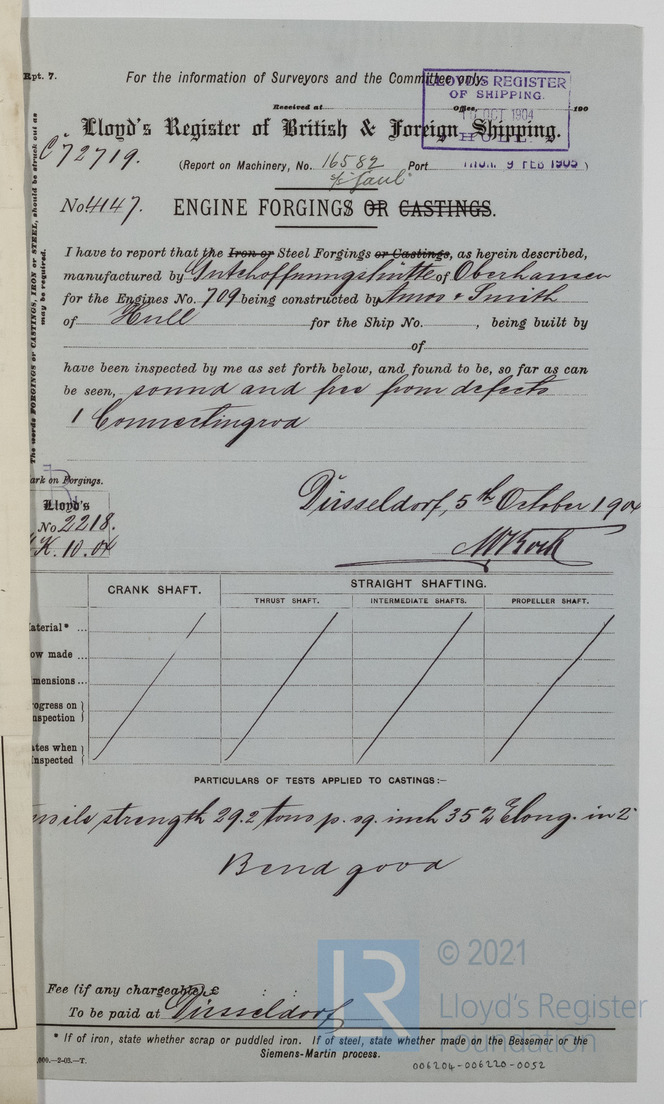 Rpt. 7.
For the information of Surveyors and the Committee only.
LLOYD'S REGISTER
OF SHIPPING.
10 OCT 1904
HULL
Received at Office, 190
Lloyd's Register of British & Foreign Shipping.
C 72719.
(Report on Machinery, No. 16582 Port THUR. 9 FEB 1905)
No. 4147. ENGINE FORGINGS OR CASTINGS.
The words FORGINGS or CASTINGS, IRON or STEEL, should be struck out as
may be required.
I have to report that the Iron or Steel Forgings or Castings, as herein described,
manufactured by Gutehoffnungshütte of Oberhausen
for the Engines No. 709 being constructed by Amos & Smith
of Hull for the Ship No. , being built by
of
have been inspected by me as set forth below, and found to be, so far as can
be seen, sound and free from defects
1 Connectingrod
ark on Forgings.
Lloyd's
No 2218.
K. 10.04
Düsseldorf, 5th October 1904
CRANK SHAFT. STRAIGHT SHAFTING.
THRUST SHAFT. INTERMEDIATE SHAFTS. PROPELLER SHAFT.
aterial* ...
ow made ...
imensions ...
rogress on
nspection
ates when
Inspected
PARTICULARS OF TESTS APPLIED TO CASTINGS:—
ensile strength 29.2 tons p. sq. inch 35% Elong. in 2"
Bend good
Fee (if any chargeable) £ : :
To be paid at Düsseldorf
* If of iron, state whether scrap or puddled iron. If of steel, state whether made on the Bessemer or the
Siemens-Martin process.
,000.—2-03.—T.
006204-006220-0052
LR
© 2021
Lloyd's Register
Foundation